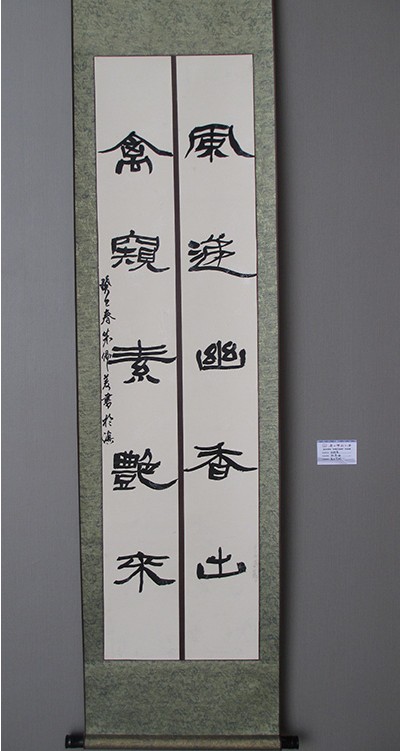 風递幽香出
禽窺素艷來
癸巳春朱書於